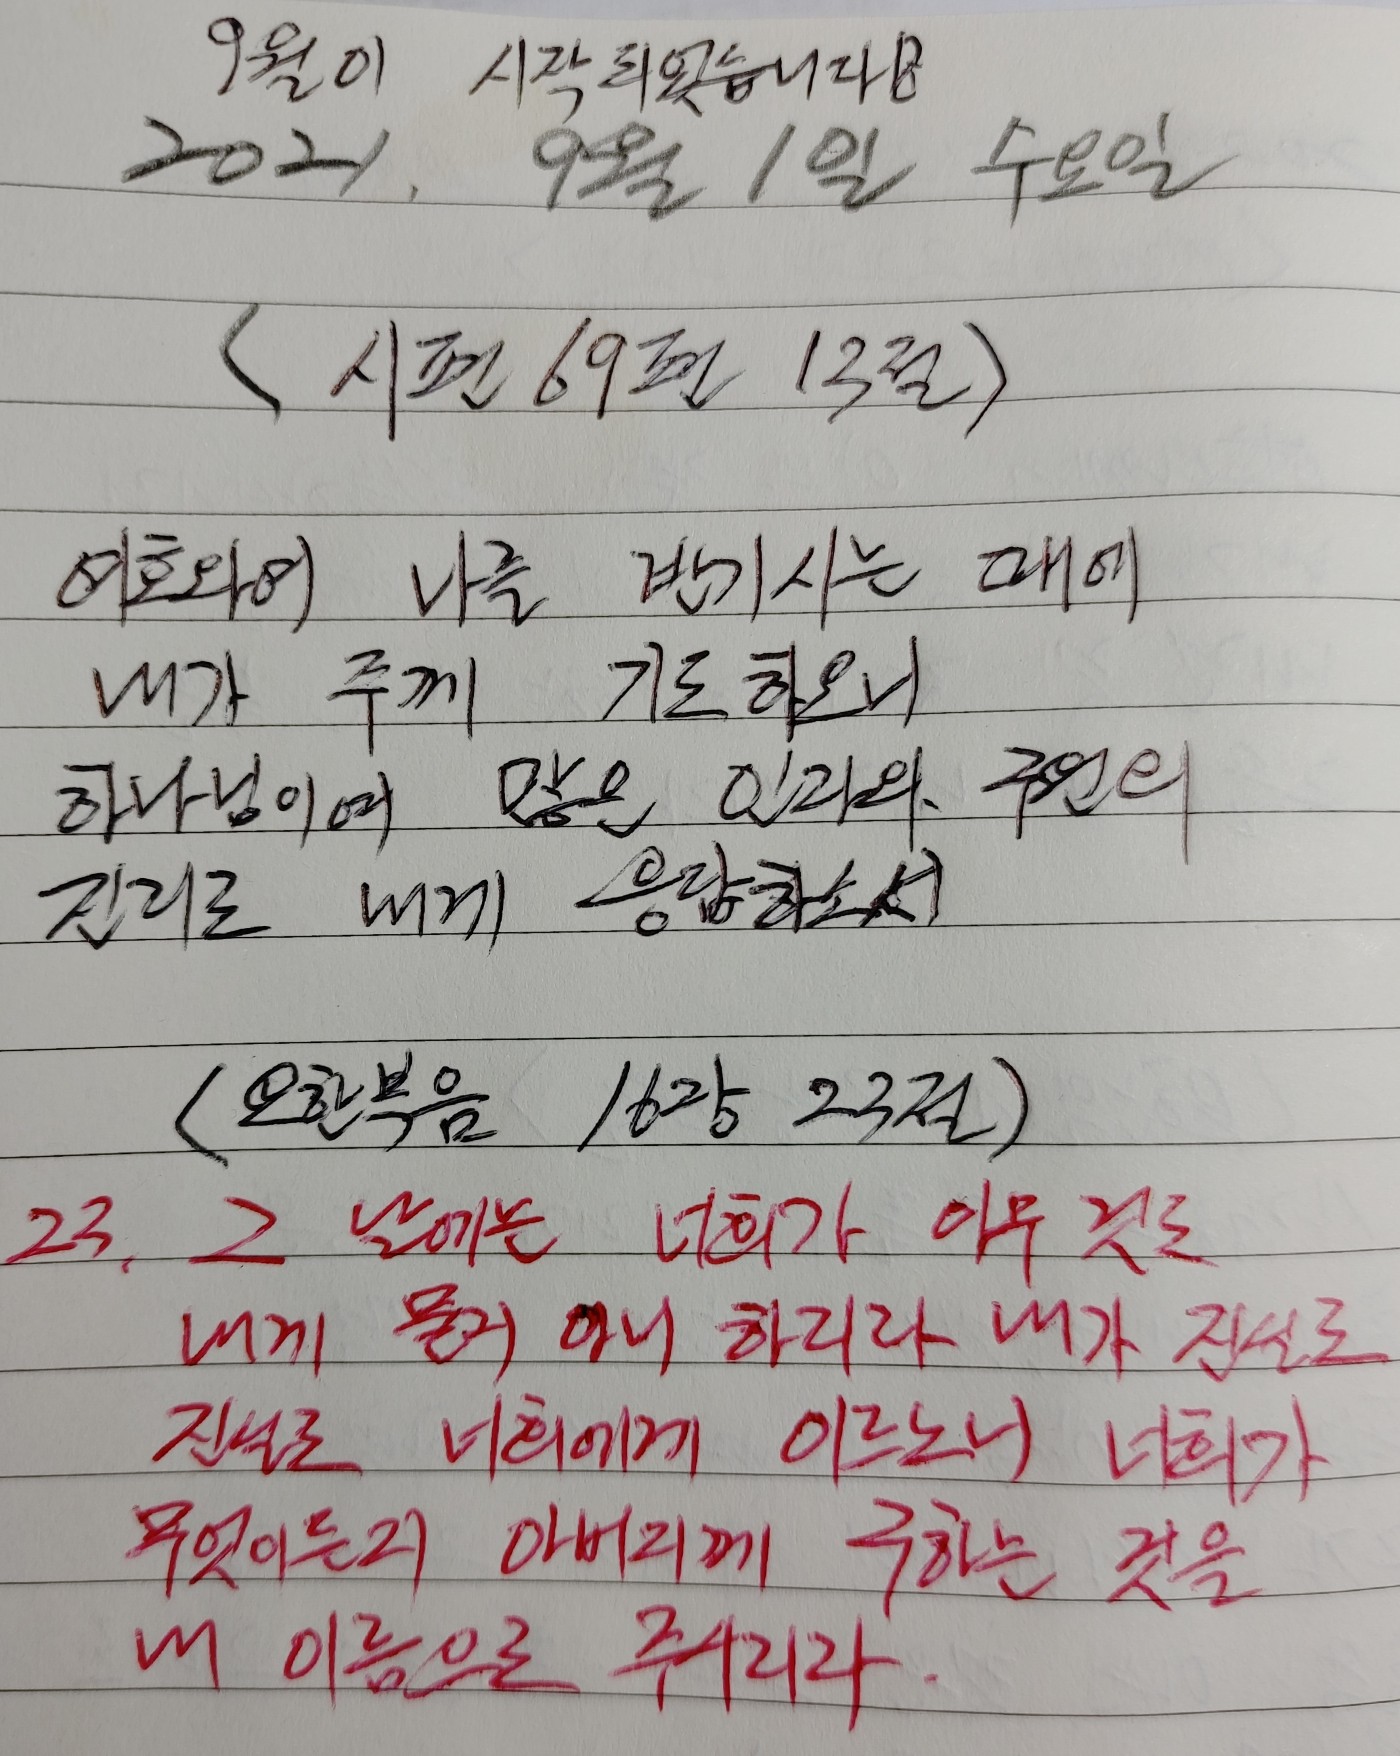 9월이 시작되였습니다!
2021. 9월 1일 수요일
〈시편 69편 13절〉
여호와여 나를 반기시는 때에
내가 주께 기도하오니
하나님이여 많은 인자와 구원의
진리로 내게 응답하소서
(요한복음 16장 23절)
23. 그 날에는 너희가 아무 것도
내게 묻지 아니 하리라 내가 진실로
진실로 너희에게 이르노니 너희가
무엇이든지 아버지께 구하는 것을
내 이름으로 주시리라.